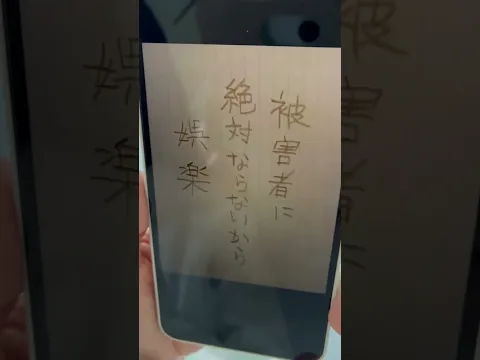 被害者に
絶対ならないから
娯楽